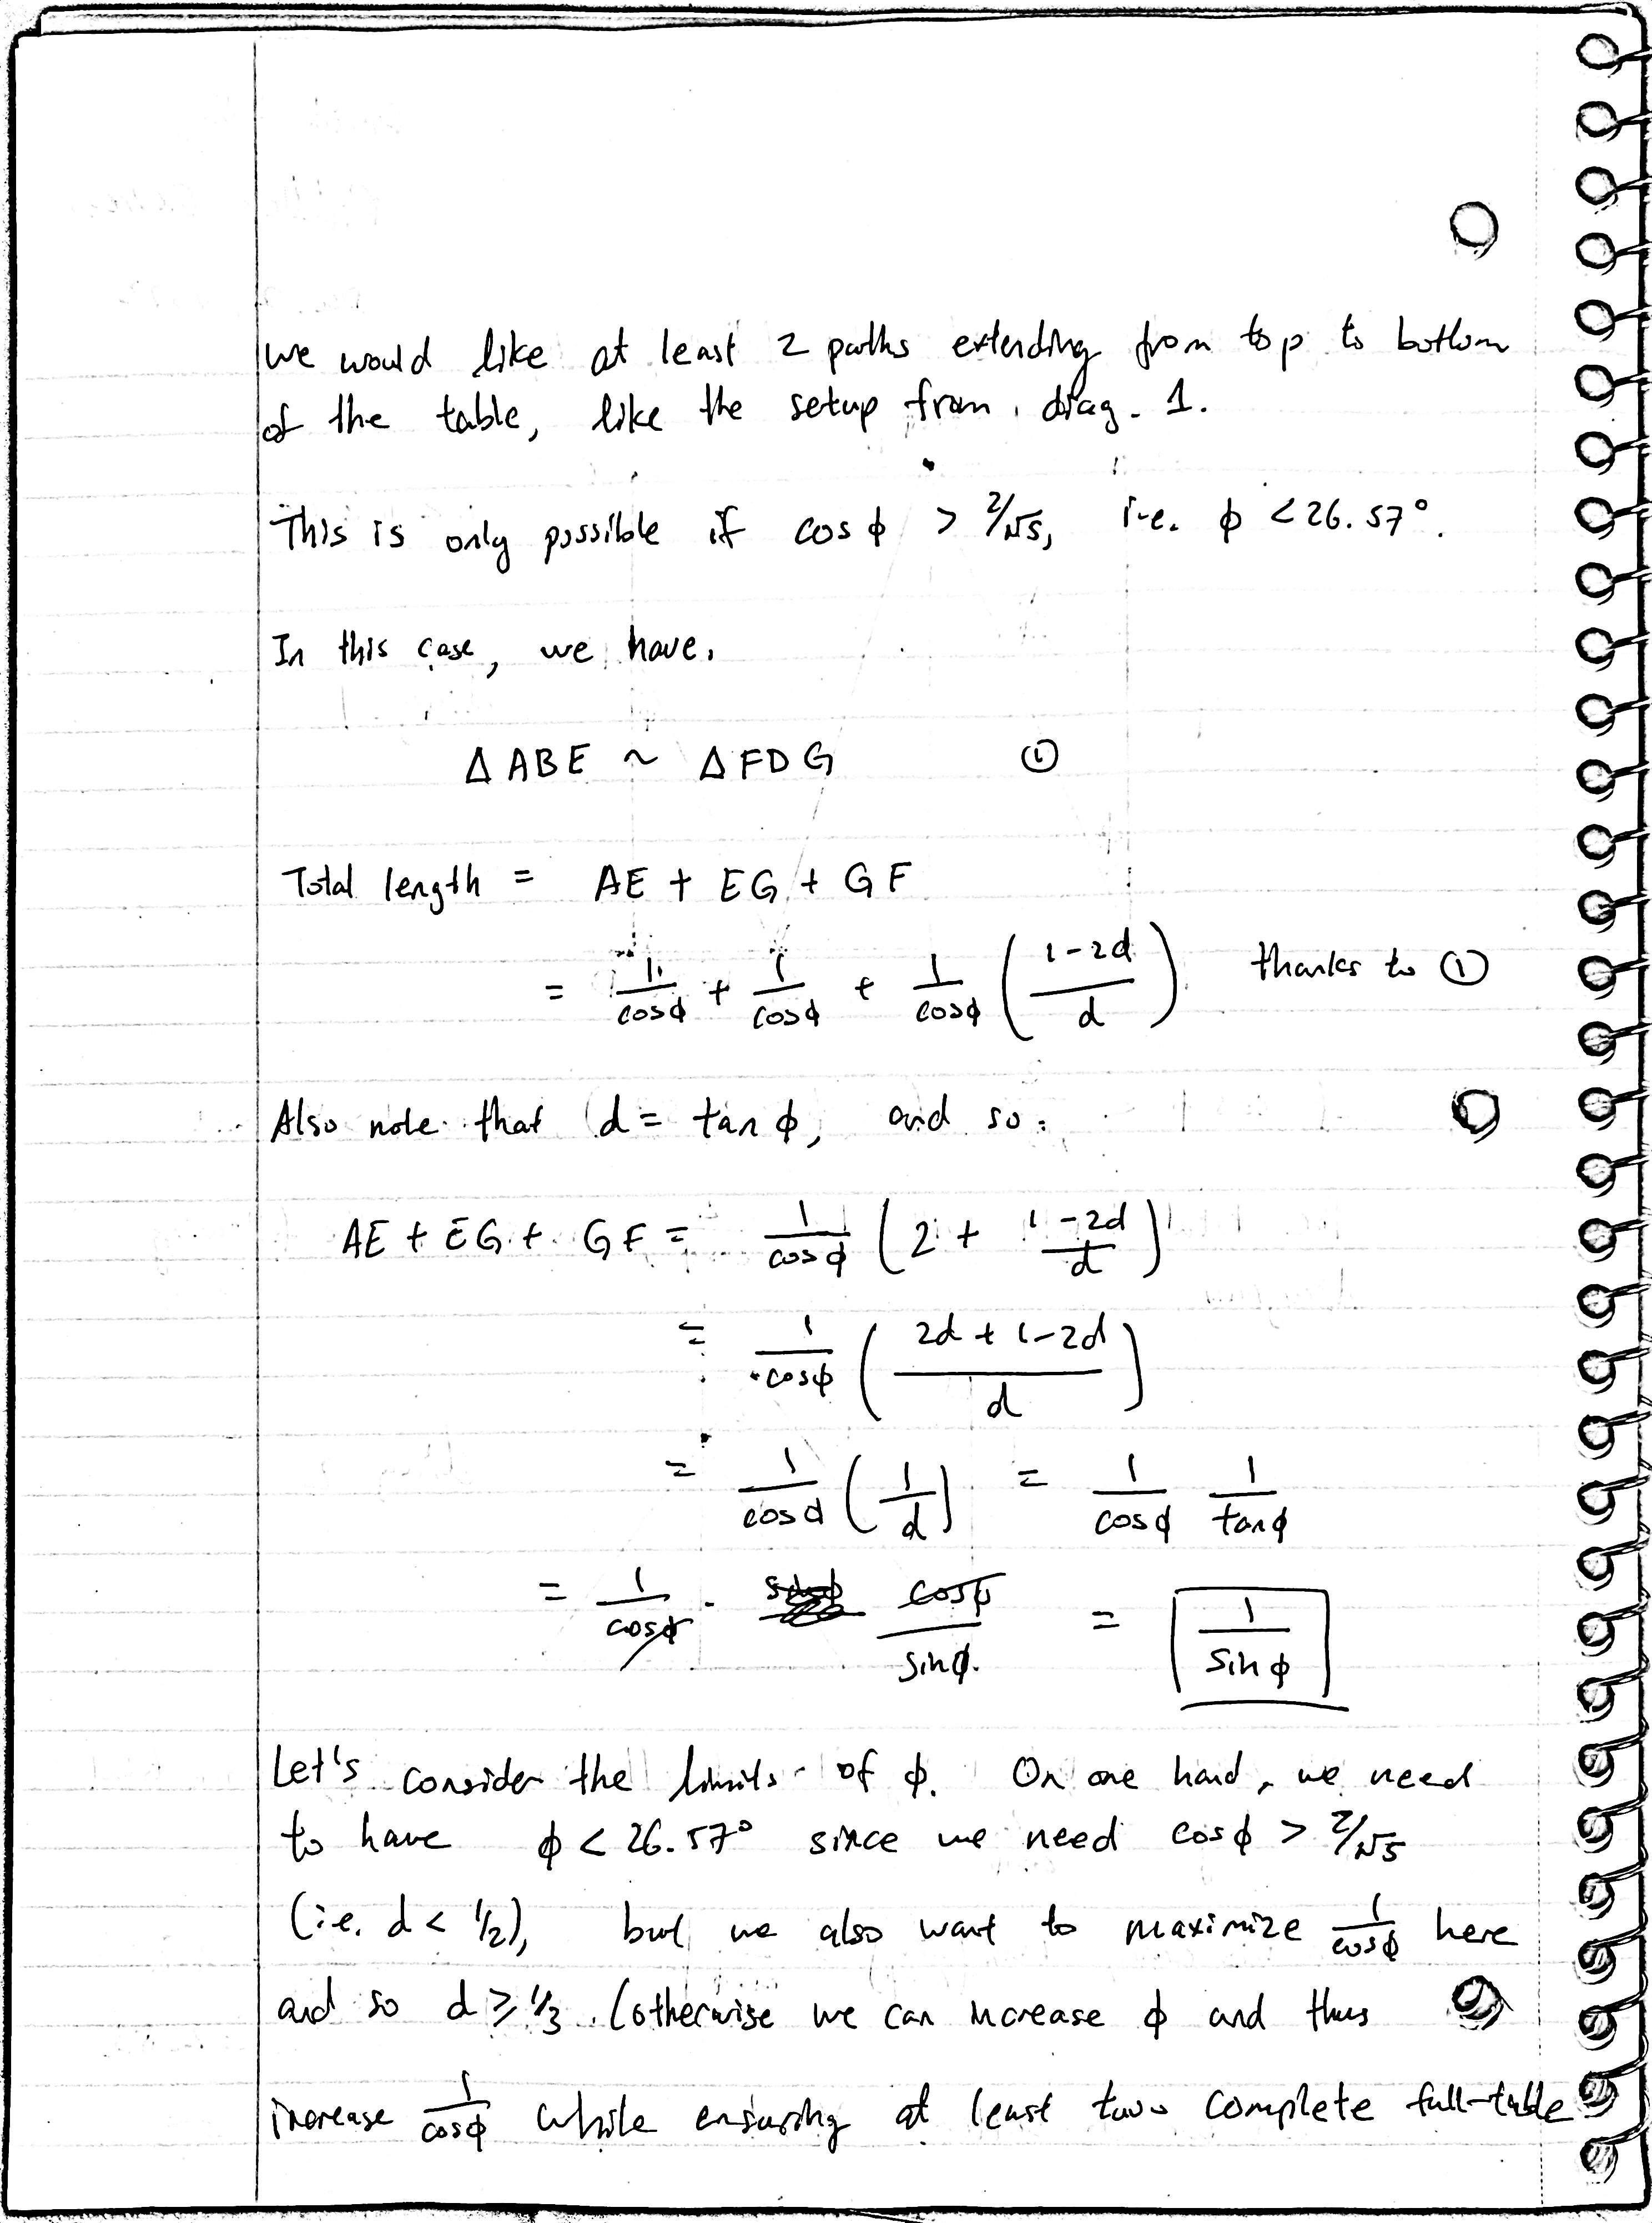 we would like at least 2 paths extending from top to bottom
of the table, like the setup from diag. 1.
This is only possible if cos ϕ > 2/√5, i.e. ϕ < 26.57°.
In this case, we have.
Δ ABE ~ Δ FDG ①
Total length = AE + EG + GF
= 1/cosϕ + 1/cosϕ + 1/cosϕ ( (1-2d)/d ) thanks to ①
Also note that d = tan ϕ, and so:
AE + EG + GF = 1/cosϕ ( 2 + (1-2d)/d )
= 1/cosϕ ( (2d + 1-2d)/d )
= 1/cosϕ ( 1/d ) = 1/cosϕ 1/tanϕ
= 1/cosϕ · cosϕ/sinϕ. = 1/sinϕ
Let's consider the limits of ϕ. On one hand, we need
to have ϕ < 26.57° since we need cosϕ > 2/√5
(i.e. d < 1/2), but we also want to maximize 1/cosϕ here
and so d ⩾ 1/3. (otherwise we can increase ϕ and thus
increase 1/cosϕ while ensuring at least two complete full-table